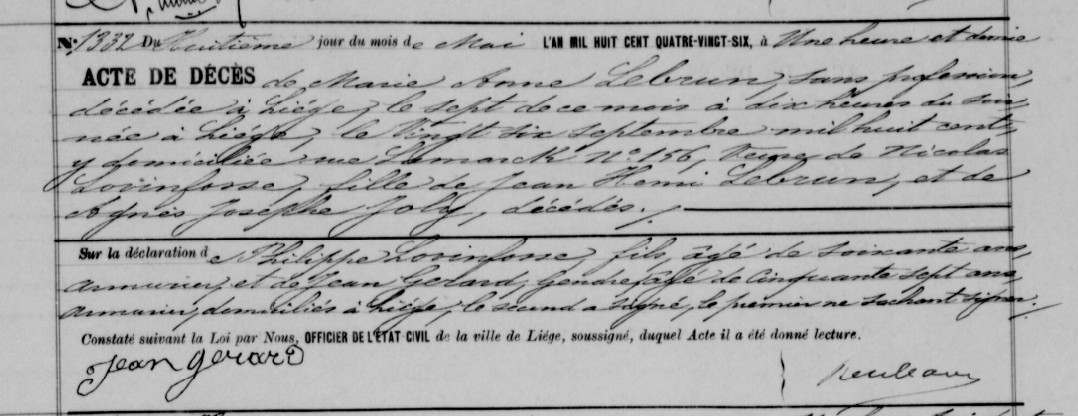 N° 1332 Du Huitième jour du mois de Mai L'AN MIL HUIT CENT QUATRE-VINGT-SIX, à Une heure et demie
ACTE DE DÉCÈS de Marie Anne Lebrun, sans profession,
décédée à Liége, le sept de ce mois à dix heures du soir
née à Liége, le Vingt six septembre mil huit cent,
y domiciliée rue Lamarck N° 156, Veuve de Nicolas
Lovinfosse, fille de Jean Henri Lebrun, et de
Agnès Josephe Joly, décédés.
Sur la déclaration de Philippe Lovinfosse, fils, âgé de soixante ans,
armurier, et de Jean Gerard, Gendre, âgé de Cinquante sept ans,
armurier, domiciliés à Liége, le second a signé, le premier ne sachant signer.
Constaté suivant la Loi par Nous, OFFICIER DE L'ÉTAT CIVIL de la ville de Liége, soussigné, duquel Acte il a été donné lecture.
Jean Gerard